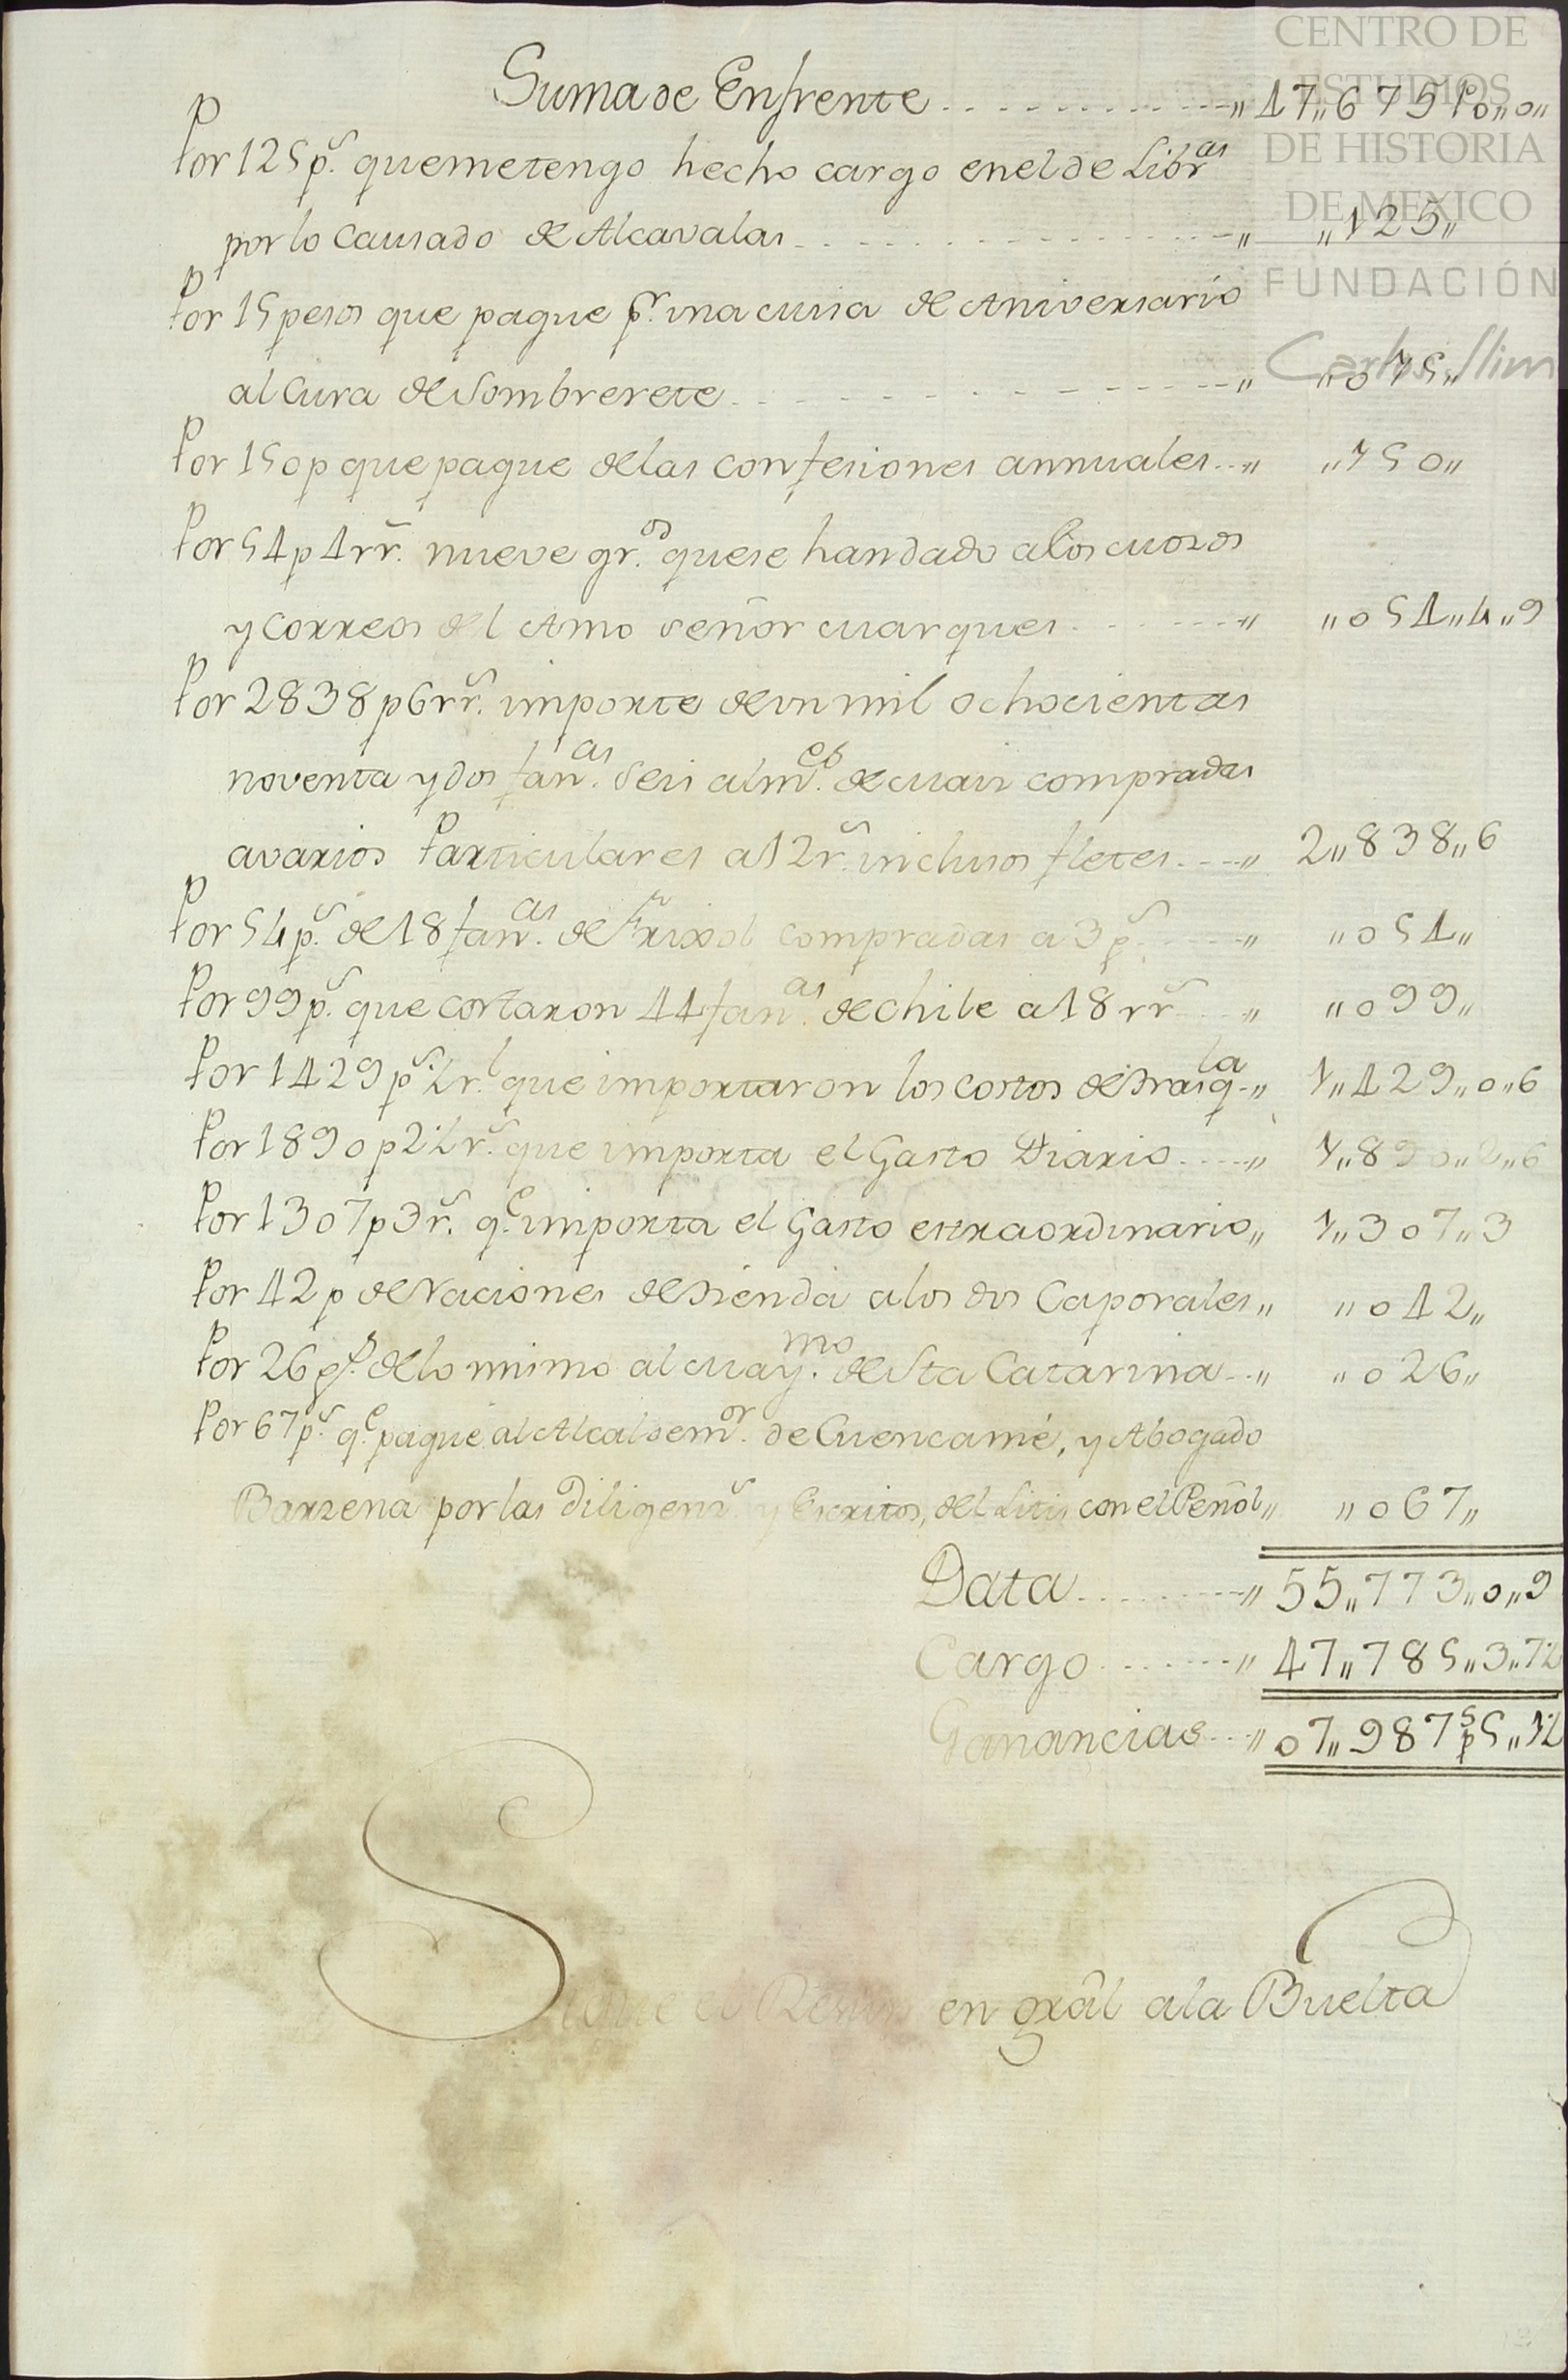 CENTRO DE
ESTUDIOS
DE HISTORIA
DE MEXICO
FUNDACIÓN
Carlos Slim
Suma de Enfrente - - - - - - - - - - „ 47„675 p o„o„
Por 125 p.s que me tengo hecho cargo en el de Libr.as
por lo Causado de Alcavalas - - - - - - - - - „ „125„
Por 15 pesos que pague p.r una Missa de Aniversario
al Cura de Sombrerete - - - - - - - - - „ „015„
Por 150 p que pague de las Confesiones annuales - - „ „150„
Por 54 p 4 rr.s nueve gr.os que se han dado a los Mozos
y Correos del Amo Señor Marques - - - - - „ „054„4„9
Por 2838 p 6 rr.s importe de un mil ochocientas
noventa y dos fan.as Seis alm.es de Mais compradas
a varios Particulares a 12 r.s inclusos fletes - - - „ 2„838„6
Por 54 p.s de 18 fan.as de Frixol compradas a 3 p.s - - - „ „054„
Por 99 p.s que costaron 44 fan.as de Chile a 18 rr.s - - „ „099„
Por 1429 p.s ½ r.l que importaron los costos de Trasq.la - „ 1„429„0„6
Por 1890 p 2½ r.s que importa el Gasto Diario - - - „ 1„890„2„6
Por 1307 p 3 r.s q.e importa el Gasto extraordinario „ 1„307„3
Por 42 p de Raciones de Tienda a los dos Caporales „ „042„
Por 26 p.s de lo mismo al May.mo de Sta Catarina - - „ „026„
Por 67 p.s q.e pague al Alcalde m.or de Cuencamé, y Abogado
Barzena por las Diligenz.s y Escritos, del Litis con el Peñol „ „067„
Data - - - - - - - „ 55„773„0„9
Cargo - - - - - - „ 47„785„3„7½
Ganancias - - „ 07„987 p.s 5„1½
en grãl a la Buelta